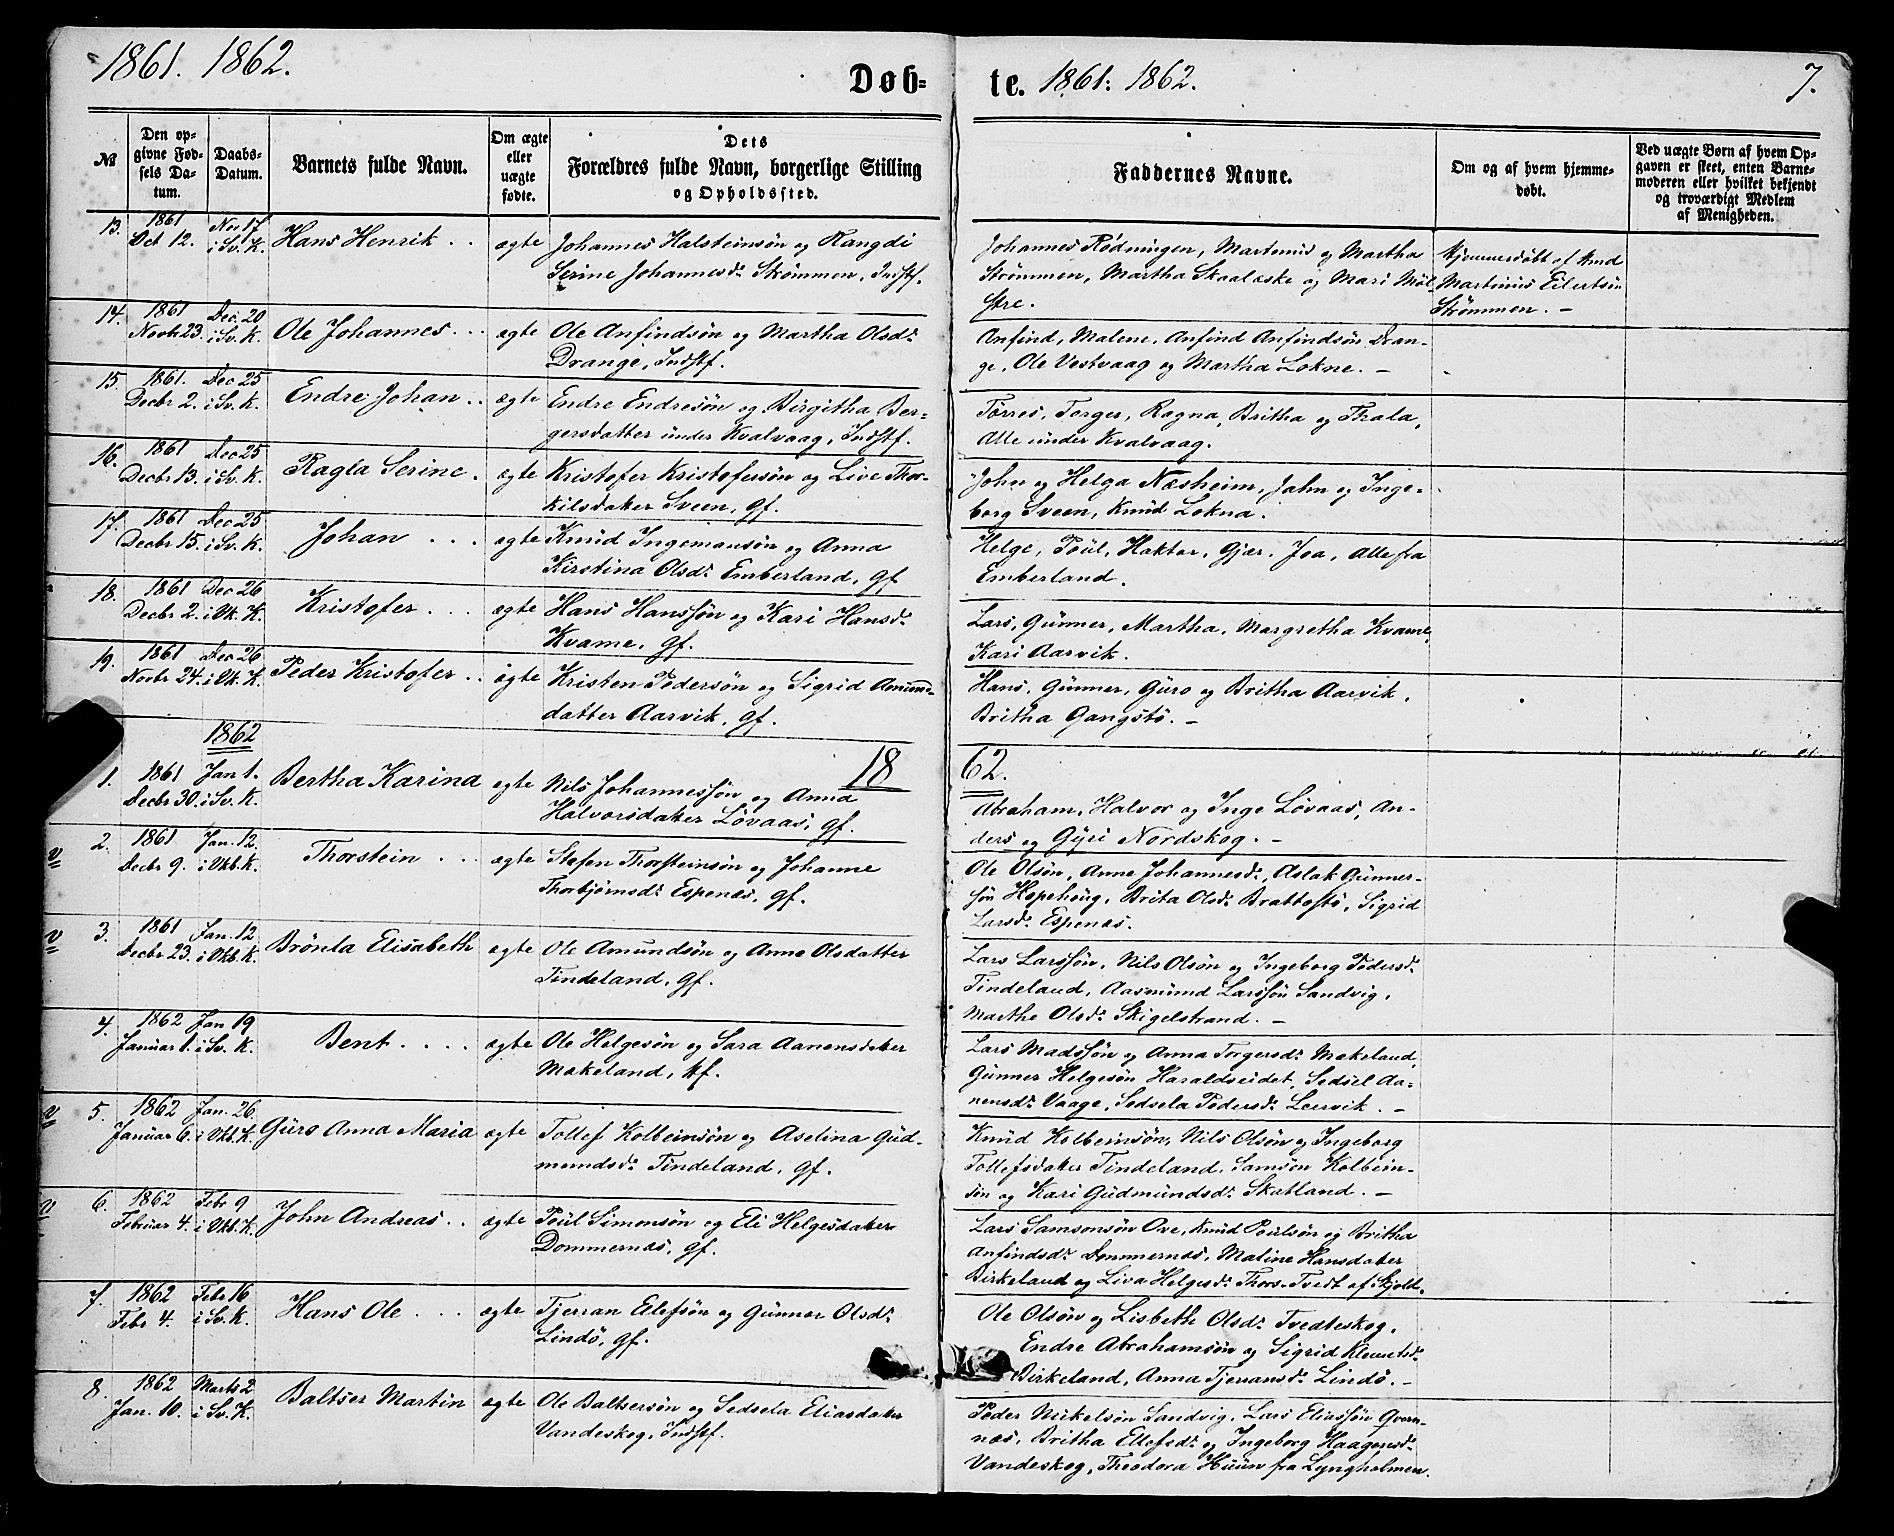 1861. 1862.
Døb-
te. 1861: 1862.
7.
№
Den op-
givne Fød-
sels Da-
tum.
Daabs-
Datum.
Barnets fulde Navn.
Om ægte
eller
uægte
fødte.
Dets
Forældres fulde Navn, borgerlige Stilling
og Opholdssted.
Faddernes Navne.
Om og af hvem hjemme-
døbt.
Ved uægte Børn af hvem Op-
gaven er skeet, enten Barne-
moderen eller hvilket bekjendt
og troværdigt Medlem
af Menigheden.
13. 1861 Oct 12. Nov 17 i Sv. K. Hans Henrik . . ægte Johannes Halsteinsøn og Rangdi
Serine Johannesd. Strømmen, Indstf.
Johannes Rødningen, Martinus og Martha
Strømmen, Martha Skaalaske og Mari Møl-
stre.
Hjemmedøbt af
Martinius Eilertsøn
Strømmen. -
14. 1861 Novb 23. Dec. 20 i Sv. K. Ole Johannes . . . ægte Ole Anfindsøn og Martha Olsd.
Drange, Indstf.
Anfind, Malene, Anfind Anfindsøn Dran-
ge, Ole Vestvaag og Martha Lokne. -
15. 1861. Decbr 2. Dec 25 i Sv. K. Endre Johan . . ægte Endre Endresøn og Birgitha Ber-
gersdatter under Kvalvaag, Indstf.
Torres, Torger, Ragna, Britha og Thala,
Alle under Kvalvaag.
16. 1861 Decbr 13. Dec 25 i Sv. K. Ragla Serine . ægte Kristofer Kristofersøn og Live Thor-
kilsdater Sveen, gf.
John og Helga Næsheim, John og Inge-
borg Sveen, Knud Lokna.
17. 1861 Decbr 15. Dec 25 i Sv. K. Johan . . . ægte Knud Ingemansøn og Anna
Kirstina Olsd. Emberland, gf
Helge, Poul, Haktor, Gjær, Joa, Alle fra
Emberland.
18. 1861 Decbr 2. Dec 26 i Vk. K. Kristofer . . . ægte Hans Hanssøn og Kari Hansd.
Kvame, gf.
Lars, Gunner, Martha, Margretha Kvame,
Kari Aarvik.
19. 1861 Novbr 24. Dec 26 i Vk. K. Peder Kristofer . . ægte Kristen Pedersøn og Sigrid Amunds-
datter Aarvik, gf.
Hans, Gunner, Guro og Britha Aarvik,
Britha Gangstø. -
1862
18
62.
1. 1861 Decbr 30. Jan 1. i Sv. K. Bertha Karina ægte Nils Johannessøn og Anna
Halvorsdater Løvaas, gf.
Abraham, Halvor og Inge Løvaas, An-
ders og Gyri Nordskog. -
v 2. 1861 Decbr 9. Jan. 12. i Vkb. K. Thorstein . . . ægte Stefen Thorsteinsøn og Johanne
Thorbjørnsd. Espenæs, gf.
Ole Olsøn, Anne Johannesd., Aslak Gunner-
søn Hopehoug, Brita Olsd. Brattestø, Sigrid
Larsd. Espenæs.
v 3. 1861 Decbr 23. Jan. 12 i Vkb. K. Brønla Elisabeth ægte Ole Amundsøn og Anne Olsdatter
Tindeland, gf.
Lars Larssøn, Nils Olsøn og Ingeborg Pedersd.
Tindeland, Aasmund Larssøn Sandvig,
Marthe Olsd. Skigelstrand. -
4. 1862 Januar 1. Jan 19 i Sv. K. Bent . . . . ægte Ole Helgesøn og Sara Aanensdater
Mækeland, kf.
Lars Madssøn og Anna Torgersd. Mækeland,
Gunner Helgesøn Haraldseidet, Sedsel Aa-
nensd. Vaage, Sedsela Pedersd. Leervik. -
v 5. 1862 Januar 6. Jan. 26 i Vkb. K. Guro Anna Maria ægte Tollef Kolbeinsøn og Aselina Gud-
mundsd. Tindeland, gf.
Knud Kolbeinsøn, Nils Olsøn og Ingeborg
Tollefsdater Tindeland, Samson Kolbein-
søn og Kari Gudmundsd. Skatland. -
v 6. 1862 Februar 4. Febr 9 i Vkb. K. John Andreas . . ægte Poul Simonsøn og Eli Helgesdater
Dommernæs, gf.
Lars Samsonsøn Ove, Knud Poulsøn og Britha
Anfindsd. Dommernæs, Maline Hansdater
Birkeland og Liva Helgesd. Thors-Tvedt af Skjold.
7. 1862 Febr 4. Febr 16 i Sv. K. Hans Ole . . . ægte Tjerran Elefsøn og Gunnor Olsd.
Lindø, gf.
Ole Olsøn og Lisbeth Olsd. Tvedteskog,
Endre Abrahamsøn og Sigrid Klemetsd.
Birkeland, Anna Tjerransd. Lindø. -
8. 1862 Jan. 10. Marts 2 i Sv. K. Baltser Martin ægte Ole Baltsersøn og Sedsela Eliasdater
Vandeskog, Indstf.
Peder Mikelsøn Sandvig, Lars Eliassøn Qvern-
næs, Britha Ellefsd. og Ingeborg Haagensd.
Vandeskog, Theodora Huun fra Lyngholmen.